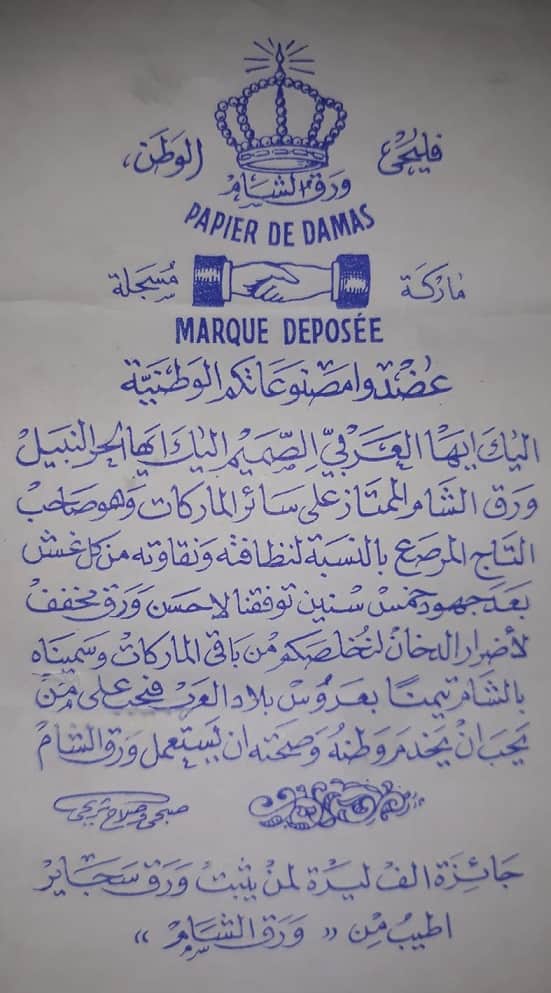 فليحيَ الوطن،
ورق الشام
PAPIER DE DAMAS
ماركة مسجلة
MARQUE DEPOSÉE
عضدوا مصنوعاتكم الوطنية
اليك ايها العربي الصميم اليك ايها الحر النبيل
ورق الشام الممتاز على سائر الماركات وهو صاحب
التاج المرصع بالنسبة لنظافته ونقاوته من كل غش
بعد جهود خمس سنين توفقنا لاحسن ورق مخفف
لأضرار الدخان لنخلصكم من باقي الماركات وسميناه
بالشام تيمنا بعروس بلاد العرب فيجب على من
يحب ان يخدم وطنه وصحته ان يستعمل ورق الشام
صبحي وصلاح
جائزة الف ليرة لمن يثبت ورق سجاير
اطيب من « ورق الشام »